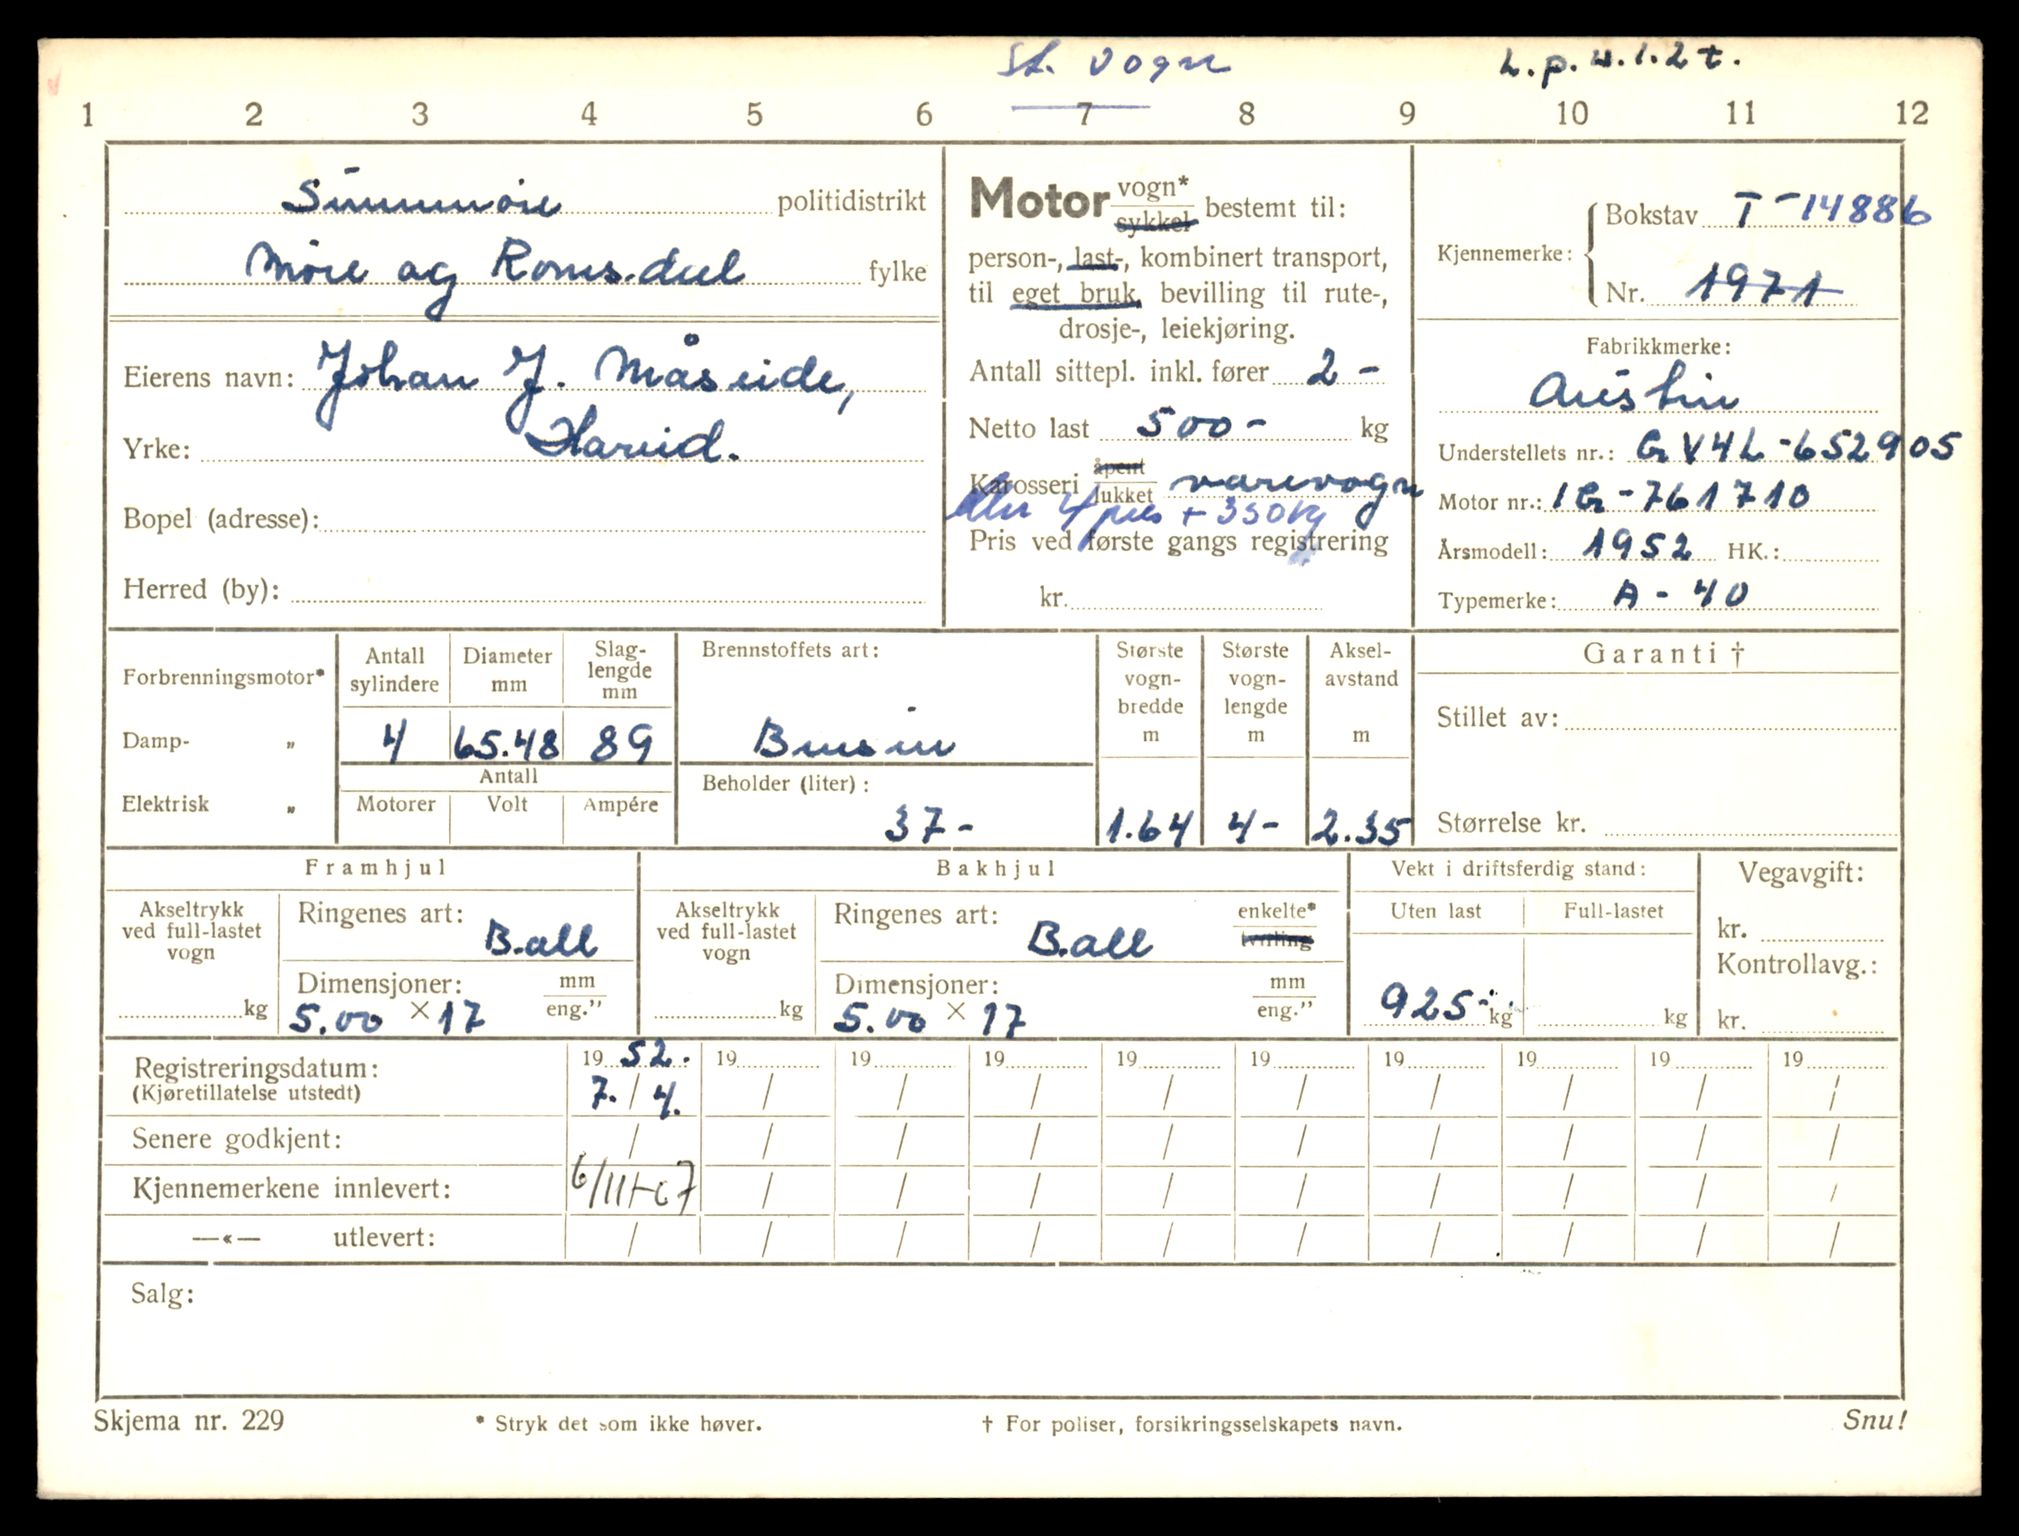 St. vogn L.p.w.1.2 t.
1 2 3 4 5 6 7 8 9 10 11 12
Sunnmøre politidistrikt
Møre og Romsdal fylke
Eierens navn: Johan J. Måseide,
Yrke: Hareid.
Bopel (adresse):
Herred (by):
Motor vogn* sykkel bestemt til:
person-, last-, kombinert transport,
til eget bruk, bevilling til rute-,
drosje-, leiekjøring.
Antall sittepl. inkl. fører 2 -
Netto last 500- kg
Karosseri åpent lukket varevogn
4 pers + 350 kg
Pris ved første gangs registrering
kr.
Kjennemerke: Bokstav T -14886
Nr. 1971
Fabrikkmerke:
Austin
Understellets nr.: G V4L-652905
Motor nr.: 1G-761710
Årsmodell: 1952 HK.:
Typemerke: A - 40
Forbrenningsmotor*
Damp- „
Elektrisk „
Antall sylindere Diameter mm Slag-lengde mm
4 65.48 89
Antall
Motorer Volt Ampére
Brennstoffets art:
Bensin
Beholder (liter):
37-
Største vogn-bredde m Største vogn-lengde m Aksel-avstand m
1.64 4- 2.35
Garanti †
Stillet av:
Størrelse kr.
Framhjul
Akseltrykk ved full-lastet vogn
kg
Ringenes art: B.all
Dimensjoner: mm eng."
5.00 × 17
Bakhjul
Akseltrykk ved full-lastet vogn
kg
Ringenes art: B.all enkelte* tvilling
Dimensjoner: mm eng."
5.00 × 17
Vekt i driftsferdig stand:
Uten last Full-lastet
925- kg kg
Vegavgift:
kr.
Kontrollavg.:
kr.
Registreringsdatum: 19 52. 19 19 19 19 19 19 19 19 19
(Kjøretillatelse utstedt) 7. / 4. / / / / / / / / /
Senere godkjent: / / / / / / / / / /
Kjennemerkene innlevert: 6/III-67 / / / / / / / / /
—«— utlevert: / / / / / / / / / /
Salg:
Skjema nr. 229 * Stryk det som ikke høver. † For poliser, forsikringsselskapets navn. Snu!